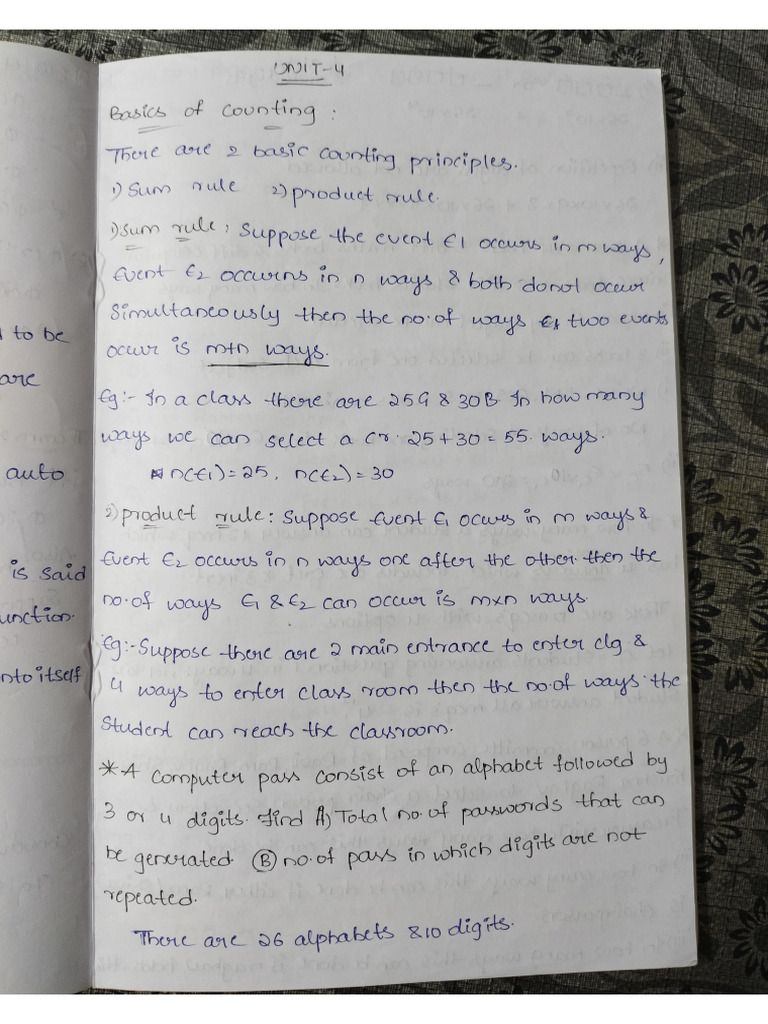 UNIT-4
Basics of Counting :
There are 2 basic counting principles.
1) Sum rule 2) product rule.
1) Sum rule : Suppose the event E1 occurs in m ways,
Event E2 occurrns in n ways & both donot occur
d to be
Simultaneously then the no.of ways two events
occur is m+n ways.
are
Eg:- In a class there are 25G & 30B. In how many
ways we can select a Cr. 25+30 = 55. ways.
auto
n(E1)=25, n(E2)=30
2) product rule : Suppose Event E1 occurs in m ways &
Event E2 occurs in n ways one after the other then the
is said
no.of ways E1 & E2 can occur is mxn ways.
unction.
Eg:- Suppose there are 2 main entrance to enter clg &
nto itself
4 ways to enter class room then the no.of ways the
Student can reach the classroom.
*A Computer pass consist of an alphabet followed by
3 or 4 digits. find A) Total no.of passwords that can
be generated. (B) no.of pass in which digits are not
repeated.
There are 26 alphabets & 10 digits.